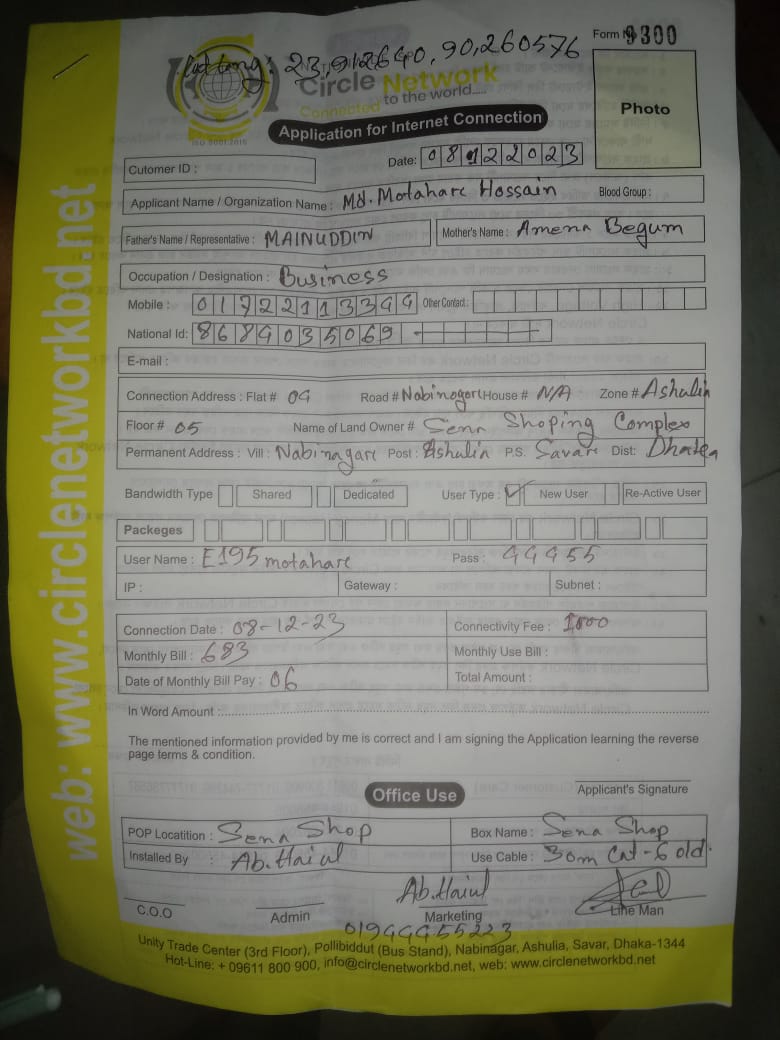 Form No 9300
Lat Long: 23,912640, 90,260576
Circle Network
Connected to the world.....
ISO 9001:2015
Application for Internet Connection
Photo
Date: 08122023
Cutomer ID :
Applicant Name / Organization Name : Md. Motahare Hossain Blood Group :
Father's Name / Representative : MAINUDDIN Mother's Name : Amena Begum
Occupation / Designation : Business
Mobile : 01722113344 Other Contact :
National Id: 8684035069
E-mail :
Connection Address : Flat # 04 Road # Nabinogar House # N/A Zone # Ashulia
Floor # 05 Name of Land Owner # Sena Shoping Complex
Permanent Address : Vill : Nabinagar Post : Ashulia P.S. Savar Dist: Dhaka
Bandwidth Type Shared Dedicated User Type : ✓ New User Re-Active User
Packeges
User Name : E195motahare Pass : 44455
IP : Gateway : Subnet :
Connection Date : 08-12-23 Connectivity Fee : 1000
Monthly Bill : 683 Monthly Use Bill :
Date of Monthly Bill Pay : 06 Total Amount :
In Word Amount :
The mentioned information provided by me is correct and I am signing the Application learning the reverse
page terms & condition.
Applicant's Signature
Office Use
POP Locatition : Sena Shop Box Name : Sena Shop
Installed By : Ab.Haiul Use Cable : 30m Cat-6 old.
Ab.Haiul
C.O.O Admin Marketing Line Man
01944455223
Unity Trade Center (3rd Floor), Pollibiddut (Bus Stand), Nabinagar, Ashulia, Savar, Dhaka-1344
Hot-Line: + 09611 800 900, info@circlenetworkbd.net, web: www.circlenetworkbd.net
web: www.circlenetworkbd.net